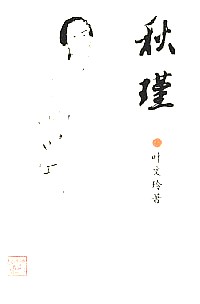 秋瑾
叶文玲著